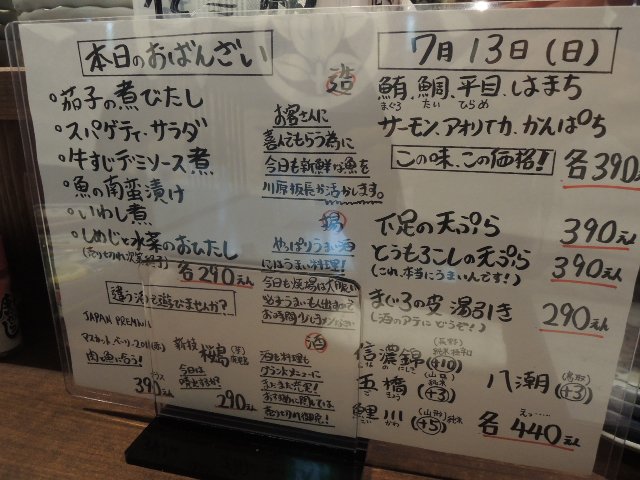 本日のおばんざい
・茄子の煮びたし
・スパゲティ・サラダ
・牛すじデミソース煮
・魚の南蛮漬け
・いわし煮
・しめじと水菜のおひたし
(売り切れ次第終了)
各290えん
違う酒も遊びませんか?
JAPAN PREMIUM
マスカット・ベーリーA
肉と魚に合う!
グラス
390えん
新技
桜島
(芋)
今日は
290えん
造
お客さんに
喜んでもらう為に
今日も新鮮な魚を
川原板長が活かします。
揚
やっぱりうまい酒
にはうまい料理!
今日も焼場は大阪
お時間少しください
酒
酒も料理も
グランドメニューに
まだまだ充実!
売り切れ御免!
7月13日(日)
鮪、鯛、平目、はまち
まぐろ たい ひらめ
サーモン、アオリイカ、かんぱち
この味、この価格!
各390えん
下足の天ぷら
390えん
とうもろこしの天ぷら
390えん
(これ、本当にうまいんです!)
まぐろの皮 湯引き
290えん
(酒のアテにどうぞ!)
信濃錦
(長野)
+10
五橋
(山口)
純米
+3
八潮
(鳥取)
+3
鯉川
(山形)純米
+5
こい かわ
えっ……
各440えん